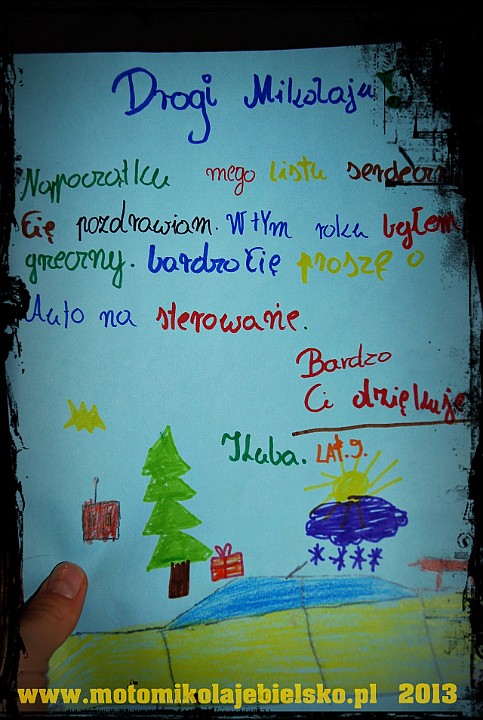 Drogi Mikołaju!
Na początku mego listu serdecznie
Cię pozdrawiam. W tym roku byłem
grzeczny. bardzo Cię proszę o
Auto na sterowanie.
Bardzo
Ci dziękuję
Kuba. LAT. 9.
www.motomikolajebielsko.pl 2013